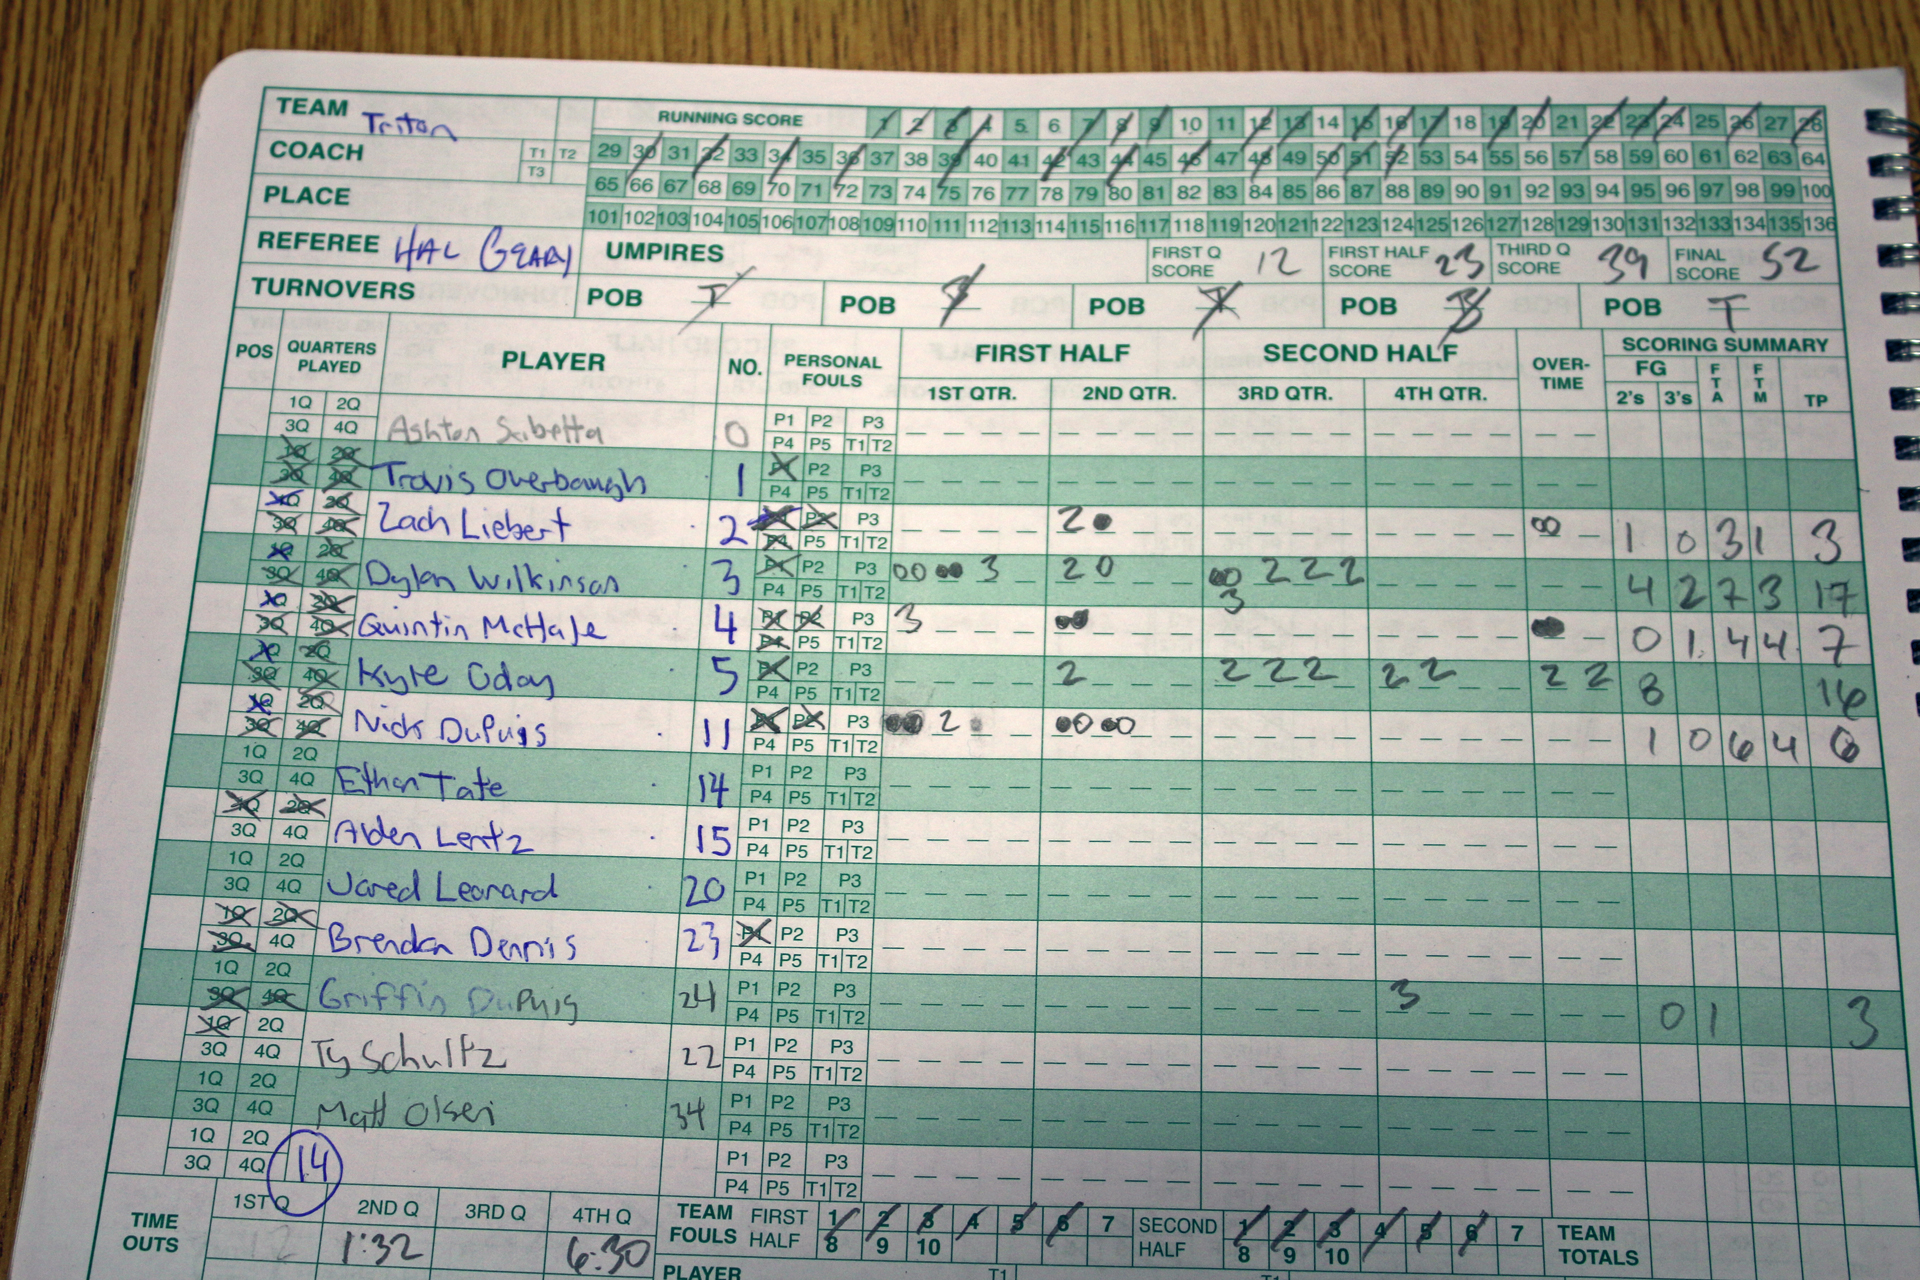 TEAM Triton RUNNING SCORE 1 2 3 4 5 6 7 8 9 10 11 12 13 14 15 16 17 18 19 20 21 22 23 24 25 26 27 28
COACH T1 T2 T3 29 30 31 32 33 34 35 36 37 38 39 40 41 42 43 44 45 46 47 48 49 50 51 52 53 54 55 56 57 58 59 60 61 62 63 64
PLACE 65 66 67 68 69 70 71 72 73 74 75 76 77 78 79 80 81 82 83 84 85 86 87 88 89 90 91 92 93 94 95 96 97 98 99 100
101 102 103 104 105 106 107 108 109 110 111 112 113 114 115 116 117 118 119 120 121 122 123 124 125 126 127 128 129 130 131 132 133 134 135 136
REFEREE HAL GEARY UMPIRES FIRST Q SCORE 12 FIRST HALF SCORE 23 THIRD Q SCORE 39 FINAL SCORE 52
TURNOVERS POB T POB POB T POB POB T
POS QUARTERS PLAYED PLAYER NO. PERSONAL FOULS FIRST HALF SECOND HALF OVER-TIME SCORING SUMMARY
1ST QTR. 2ND QTR. 3RD QTR. 4TH QTR. FG 2's 3's FTA FTM TP
1Q 2Q 3Q 4Q Ashton Sibetta 0 P1 P2 P3 P4 P5 T1 T2
1Q 2Q 3Q 4Q Travis Overbaugh 1 P1 P2 P3 P4 P5 T1 T2
1Q 2Q 3Q 4Q Zach Liebert 2 P1 P2 P3 P4 P5 T1 T2 2 1 0 3 1 3
1Q 2Q 3Q 4Q Dylan Wilkinson 3 P1 P2 P3 P4 P5 T1 T2 3 2 0 2 2 2 3 4 2 7 3 17
1Q 2Q 3Q 4Q Quintin McHale 4 P1 P2 P3 P4 P5 T1 T2 3 0 1 4 4 7
1Q 2Q 3Q 4Q Kyle Oday 5 P1 P2 P3 P4 P5 T1 T2 2 2 2 2 2 2 2 2 8 16
1Q 2Q 3Q 4Q Nick DuPuis 11 P1 P2 P3 P4 P5 T1 T2 2 1 0 6 4 6
1Q 2Q 3Q 4Q Ethan Tate 14 P1 P2 P3 P4 P5 T1 T2
1Q 2Q 3Q 4Q Alden Lentz 15 P1 P2 P3 P4 P5 T1 T2
1Q 2Q 3Q 4Q Jared Leonard 20 P1 P2 P3 P4 P5 T1 T2
1Q 2Q 3Q 4Q Brendan Dennis 23 P1 P2 P3 P4 P5 T1 T2
1Q 2Q 3Q 4Q Griffin DuPuis 24 P1 P2 P3 P4 P5 T1 T2 3 0 1 3
1Q 2Q 3Q 4Q Ty Schultz 22 P1 P2 P3 P4 P5 T1 T2
1Q 2Q 3Q 4Q Matt Olsen 34 P1 P2 P3 P4 P5 T1 T2
1Q 2Q 3Q 4Q 14 P1 P2 P3 P4 P5 T1 T2
TIME OUTS 1ST Q 2ND Q 3RD Q 4TH Q TEAM FOULS FIRST HALF 1 2 3 4 5 6 7 8 9 10 SECOND HALF 1 2 3 4 5 6 7 8 9 10 TEAM TOTALS
12 1:32 6:30
PLAYER T1 T1